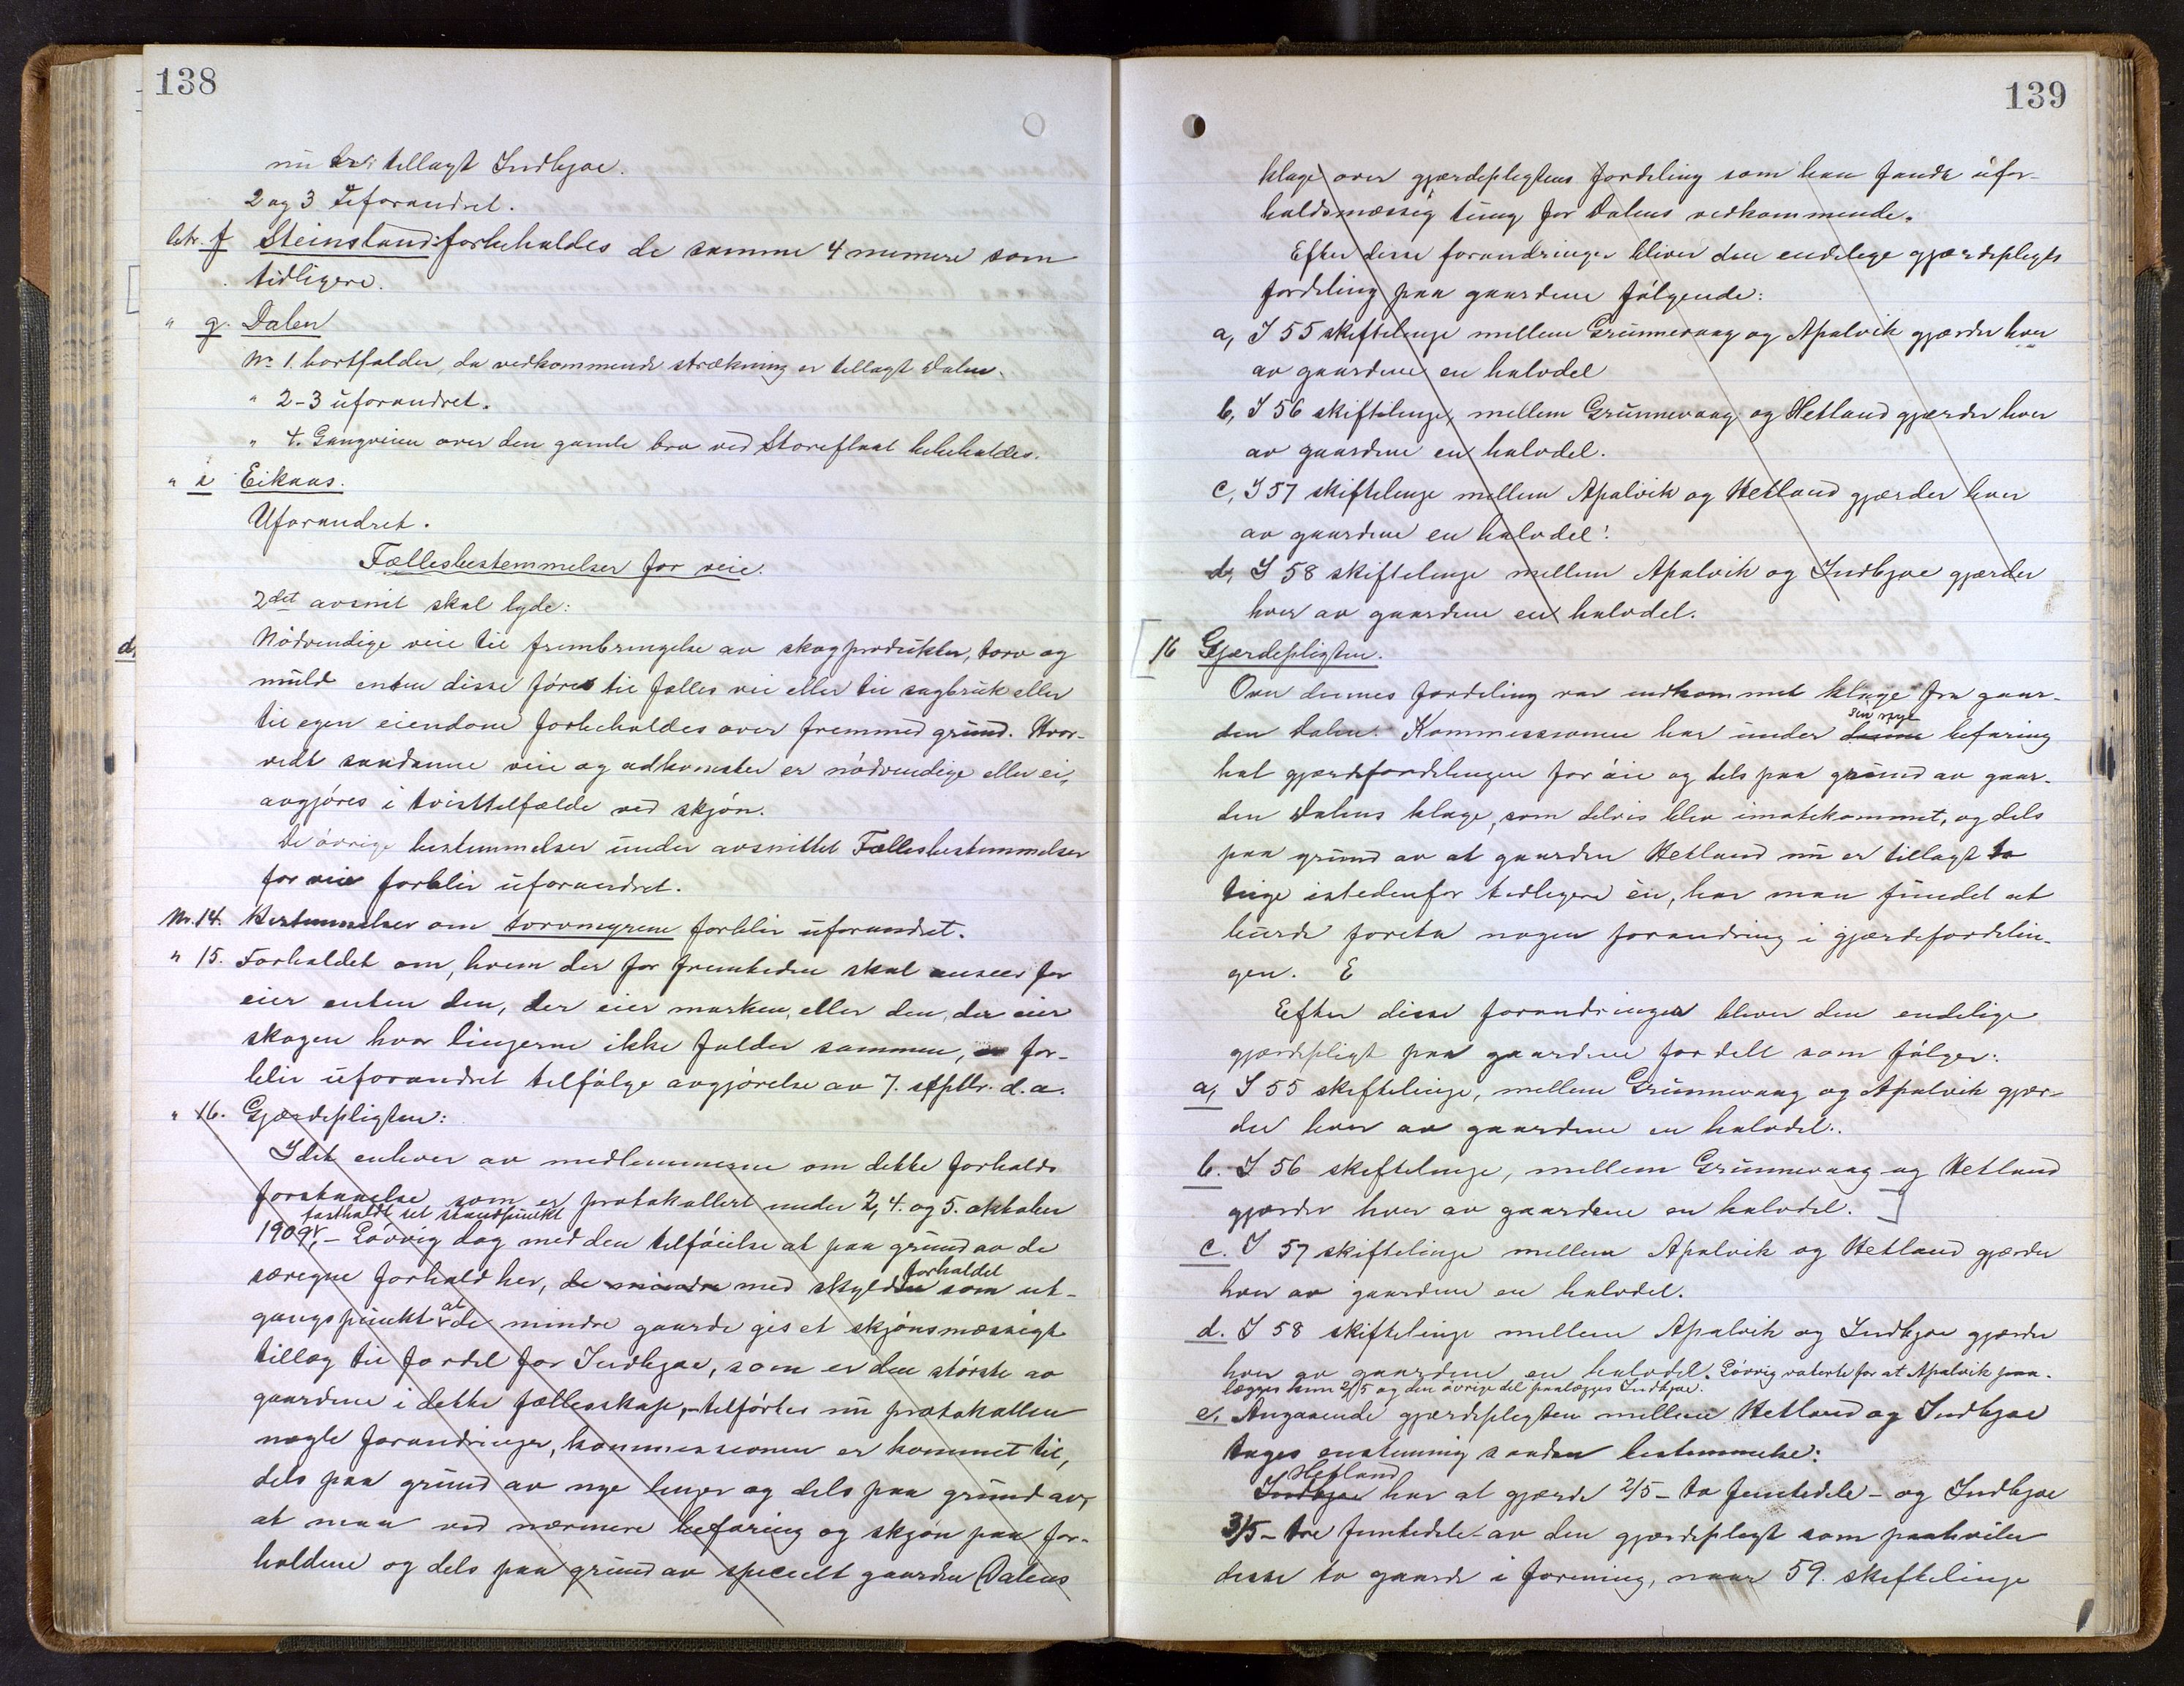 138
nu er tillagt Indbjoe.
2 og 3 Uforandret.
Litr. f Steinsland: forbeholdes de samme 4 numere som
tidligere.
" g. Dalen
No 1. bortfalder, da vedkommende strækning er tillagt Dalen.
" 2-3 uforandret.
" 4. Gangveien over den gamle bro ved Storeflaat bibeholdes.
" Eikaas.
Uforandret.
Fællesbestemmelser for veie.
2det avsnit skal lyde:
Nödvendige veie til frembringelse av skogprodukter, torv og
muld enten disse föres til fælles vei eller til sagbruk eller
til egen eiendom forbeholdes over fremmed grund. Hvor-
vidt saadanne veie og adkomster er nödvendige eller ei,
avgjöres i tvisttilfælde ved skjön.
De övrige bestemmelser under avsnittet Fællesbestemmelser
for veie forblir uforandret.
Nr. 14. Bestemmelser om torvmyrene forblir uforandret.
" 15. Forholdet om, hvem der for fremtiden skal ansees for
eier enten den, der eier marken, eller den, der eier
skogen hvor linjerne ikke falder sammen, for-
blir uforandret tilfölge avgjörelse av 7. septbr. d.a.
" 16. Gjærdepligten:
Idet enhver av medlemmerne om dette forholds
forstaaelse som er protokollert under 2, 4. og 5. oktober
fastholdt sit standpunkt
1909,- Lövvig dog med den tilföielse at paa grund av de
særegne forhold her, de mindre med skylden som ut-
forholdet
gangspunkt at de mindre gaarde gis et skjönsmæssigt
tillæg til fordel for Indbjoe, som er den störste av
gaardene i dette fællesskap,- tilförtes nu protokollen
nogle forandringer, kommissionen er kommet til,
dels paa grund av nye linjer og dels paa grund av,
at man ved nærmere befaring og skjön paa for-
holdene og dels paa grund av specielt gaarden Dalens
d,
139
klage over gjærdepligtens fordeling som han fandt ufor-
holdsmæssig tung for Dalens vedkommende.
Efter disse forandringer bliver den endelige gjærdepligts
fordeling paa gaardene fölgende:
a, I 55 skiftelinje mellem Grunnevaag og Apalvik gjærder hver
av gaardene en halvdel
b, I 56 skiftelinje, mellem Grunnevaag og Hetland gjærder hver
av gaardene en halvdel.
c, I 57 skiftelinje mellem Apalvik og Hetland gjærder hver
av gaardene en halvdel!
d, I 58 skiftelinje mellem Apalvik og Indbjoe gjærder
hver av gaardene en halvdel.
16 Gjærdepligten.
Over dennes fordeling var indkommet klage fra gaar-
den Dalen. Kommissionen har under sin nye befaring
hat gjærdefordelingen for öie og dels paa grund av gaar-
den Dalens klage, som delvis blev imötekommet, og dels
paa grund av at gaarden Hetland nu er tillagt to
teige istedenfor tidligere èn, har man fundet at
burde foreta nogen forandring i gjærdefordelin-
gen. E
Efter disse forandringer bliver den endelige
gjærdepligt paa gaardene fordelt som fölger:
a, I 55 skiftelinje, mellem Grunnevaag og Apalvik gjær-
der hver av gaardene en halvdel.
b. I 56 skiftelinje, mellem Grunnevaag og Hetland
gjærder hver av gaardene en halvdel.
c. I 57 skiftelinje mellem Apalvik og Hetland gjærder
hver av gaardene en halvdel.
d. I 58 skiftelinje mellem Apalvik og Indbjoe gjærder
hver av gaardene en halvdel. Lövvig voterte for at Apalvik paa-
lægges kun 2/5 og den övrige del paalægges Indbjoe.
e, Angaaende gjærdepligten mellem Hetland og Indbjoe
tages enstemmig saadan bestemmelse:
Hetland
Indbjoe har at gjærde 2/5 - to femtedele - og Indbjoe
3/5 - tre femtedele - av den gjærdepligt som paahviler
disse to gaarde i forening, naar 59. skiftelinje